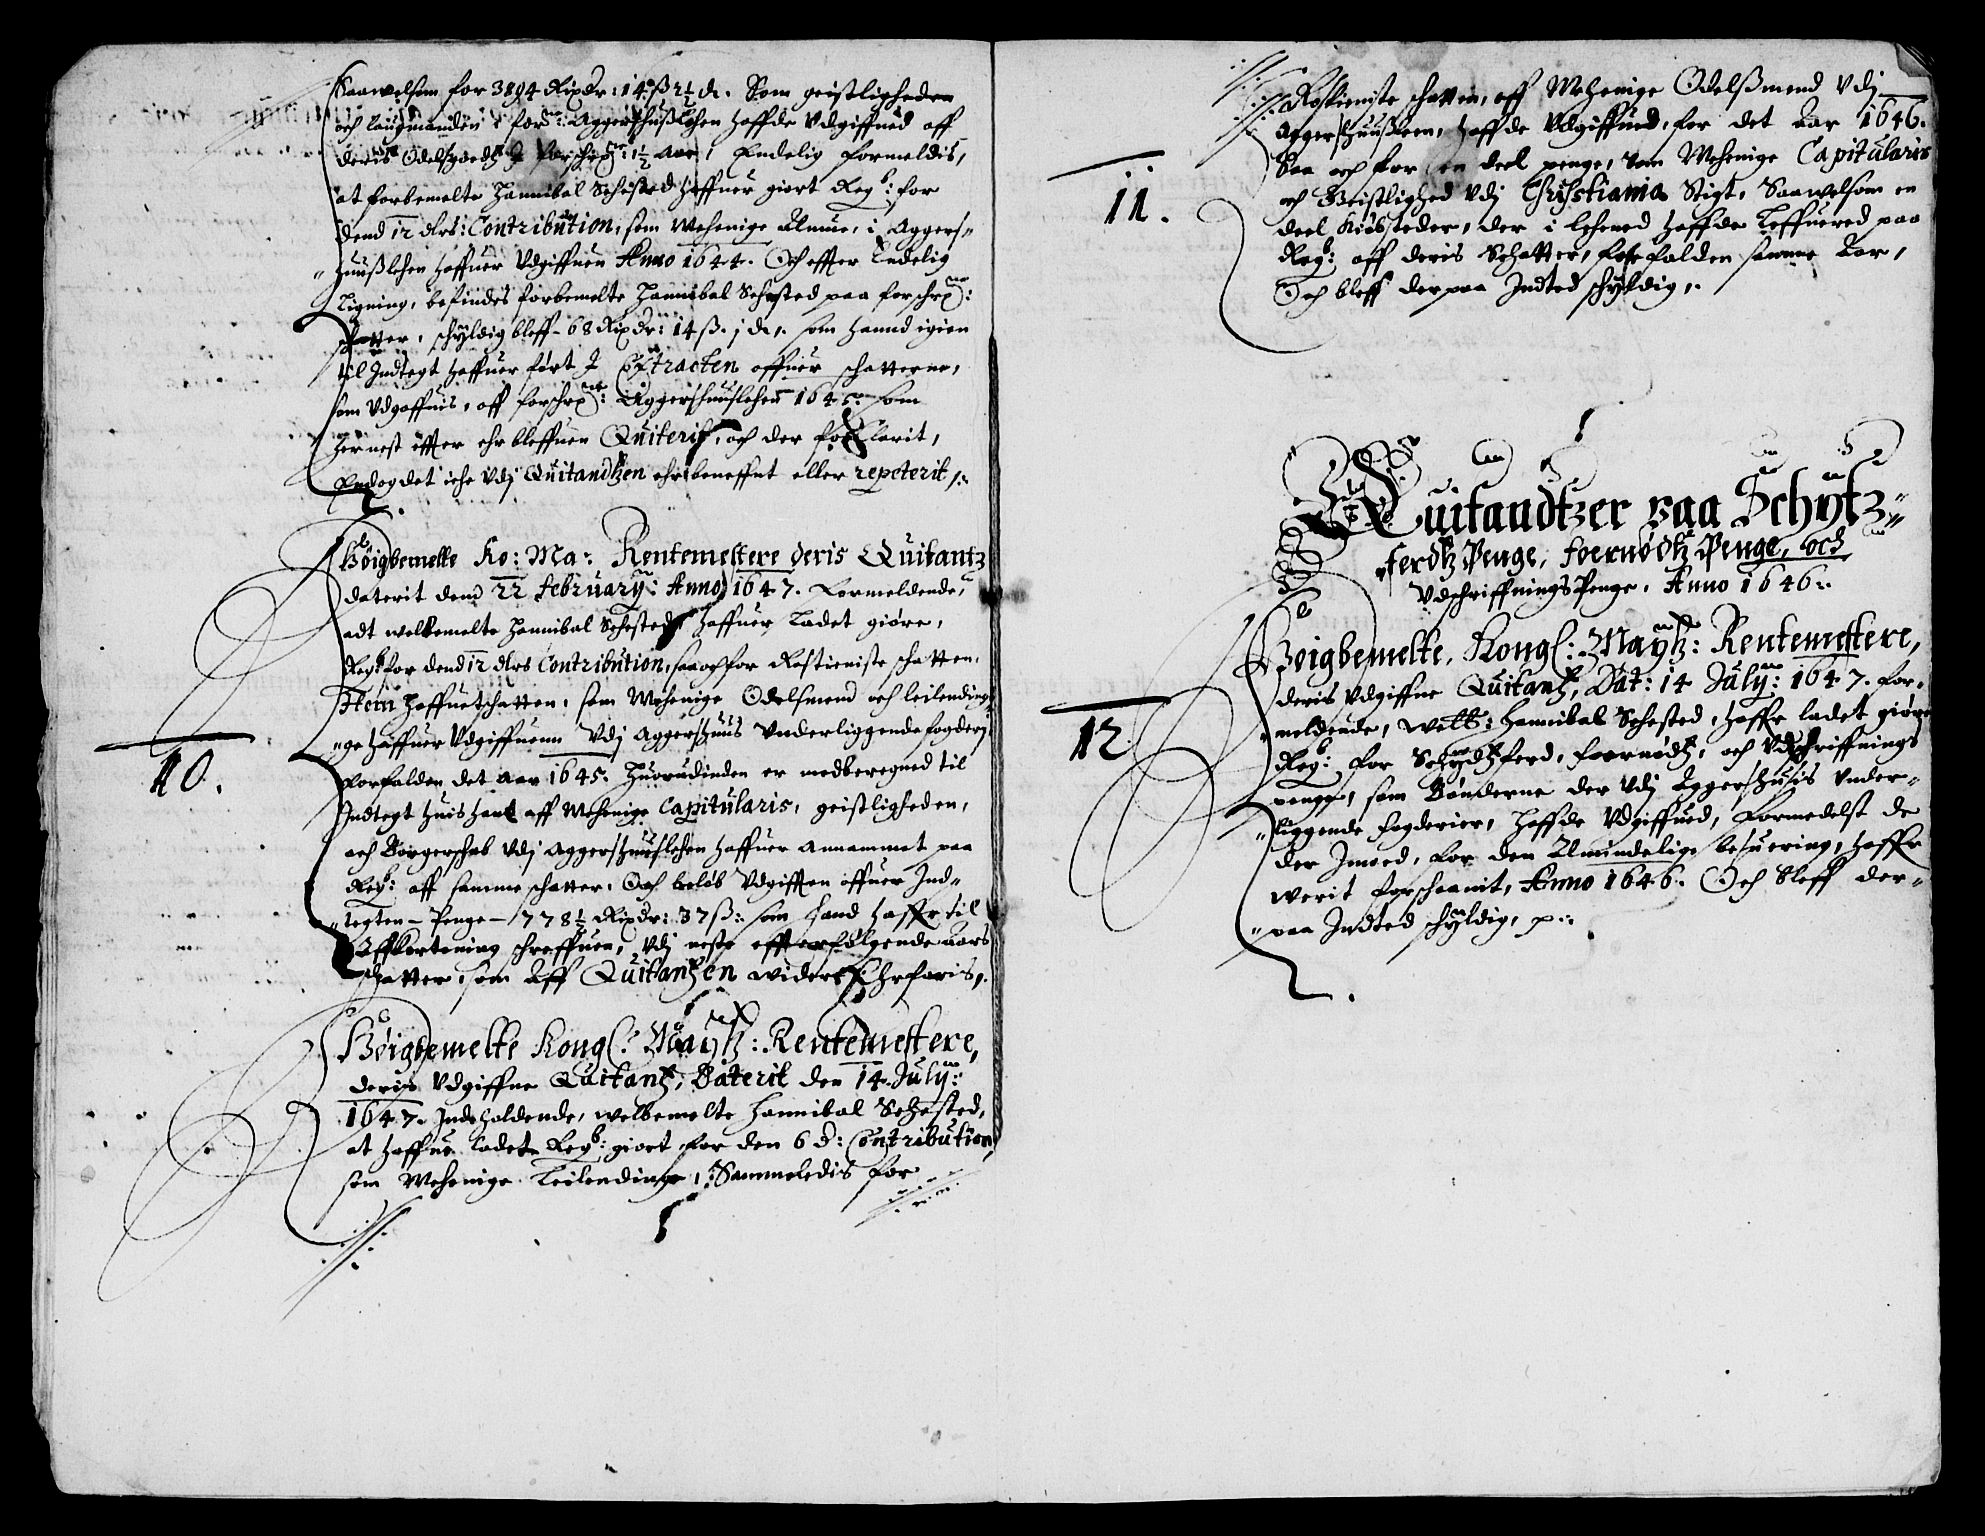 Saawelsom for 3894 Rixdr: 14 ß 2½ d. Som geistligheden
och laugmanden i for: Aggershußlehen haffde Udgiffued aff
deris Odelsgodtz J forschr: 1½ Aar, Endelig formeldis,
at forbemelte Hannibal Sehested haffuer giort Regb: for
dend 12 dlrs: Contribution, som Mehenige Almue, i Aggers-
huußlehen haffuer Udgiffuen Anno 1644. Och effter Endelig
Ligning, befindes forbemelte Hannibal Sehested paa forschr:
schatter, schyldig bleff - 68 Rixdr: 14 ß. j d, som hannd igien
til Indtegt haffuer ført J Extracten offuer schatterne,
som Udgaffuis, aff forschr: Aggershuuslehen 1645. som
hernest effter ehr bleffuen Quiterit, och der forclarit,
Endog det iche Udj Quitandtzen ehr beneffnt eller repeterit ,:
Høigbemelte Ko: Ma: Rentemestere deris Quitantz
daterit dend 22 February: Anno 1647. Formeldende,
adt welbemelte Hannibal Sehested, haffuer Ladet giøre,
Regb for dend 12 dlrs Contribution, saa och for Rostieniste schatten,
Item haffuetschatten, som Mehenige Odelsmend och leilending-
ge haffuer Udgiffuenn Udj Aggershuus Underliggende fogderj
10.
forfalden det Aar 1645. Huorudinden er medberegned til
Indtegt huis hand aff Mehenige Capitularis, geistligheden,
och Borgerschab Udj Aggershuuslehen haffuer annammet paa
Regb: aff samme schatter. Och beløb Udgifften offuer Ind-
tegten - Penge - 778½ Rixdr: 37 ß: som hand haffr til
Affkortening schreffuen, Udj neste effterfølgende aars
schatter, som Aff Quitantzen widere Ehrfaris,.
Høigbemelte Kongl: Maytz: Rentemestere,
deris Udgiffne Quitantz, Daterit den 14. July:
1647. Indeholdende, welbemelte Hannibal Sehested,
at haffue Ladet Regb: giort for den 6 d: Contribution,
som Mehenige Leilendinge, Sammeledis for
Rostieniste schatten, aff Mehenige Odelßmend Udj
Aggershuuslehen, haffde Udgiffued, for det Aar 1646.
Saa och for en deel penge, som Mehenige Capitularis
11.
och Geistlighed Udj Christiania Stigt, Saawelsom en
deel Kiøbsteder, der i lehened haffde Leffuered paa
Regb: aff deris Schatter, forfalden samme Aar,
Och bleff der paa Indted schyldig,.
Quitandtzer paa Schytz-
ferdtz Penge, foernødtz Penge, och
Udschriffnings Penge, Anno 1646:
Høigbemelte, Kongl: Maytz: Rentemestere,
deris Udgiffne Quitantz, Dat: 14 July: 1647. for-
12
meldende, Welb: Hannibal Sehested, haffr ladet giøre
Regb: for Schydtzferd, foernødtz, och Udschriffnings
penge, som Bønderne der Udj Aggershuus Under-
liggende fogderier, haffde Udgiffued, Formedelst de
der Imoed, for den Almindelig besuering, haffr
werit forschaanit, Anno 1646. Och Bleff der-
paa Indted schyldig, p: